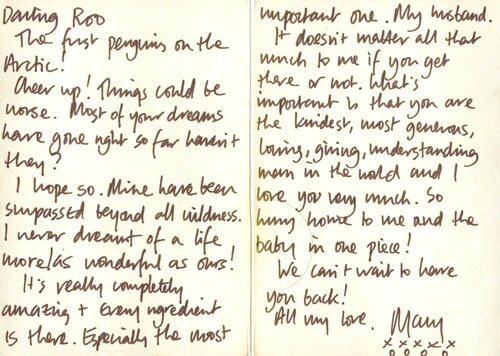 Darling Roo
The first penguins on the
Arctic.
Cheer up! Things could be
worse. Most of your dreams
have gone right so far haven't
they?
I hope so. Mine have been
surpassed beyond all wildness.
I never dreamt of a life
more/as wonderful as ours!
It's really completely
amazing + every ingredient
is there. Especially the most
important one. My husband.
It doesn't matter all that
much to me if you get
there or not. What's
important is that you are
the kindest, most generous,
loving, giving, understanding
man in the world and I
love you very much. So
hurry home to me and the
baby in one piece!
We can't wait to have
you back!
All my love. Mary
x x x x x
o o o o